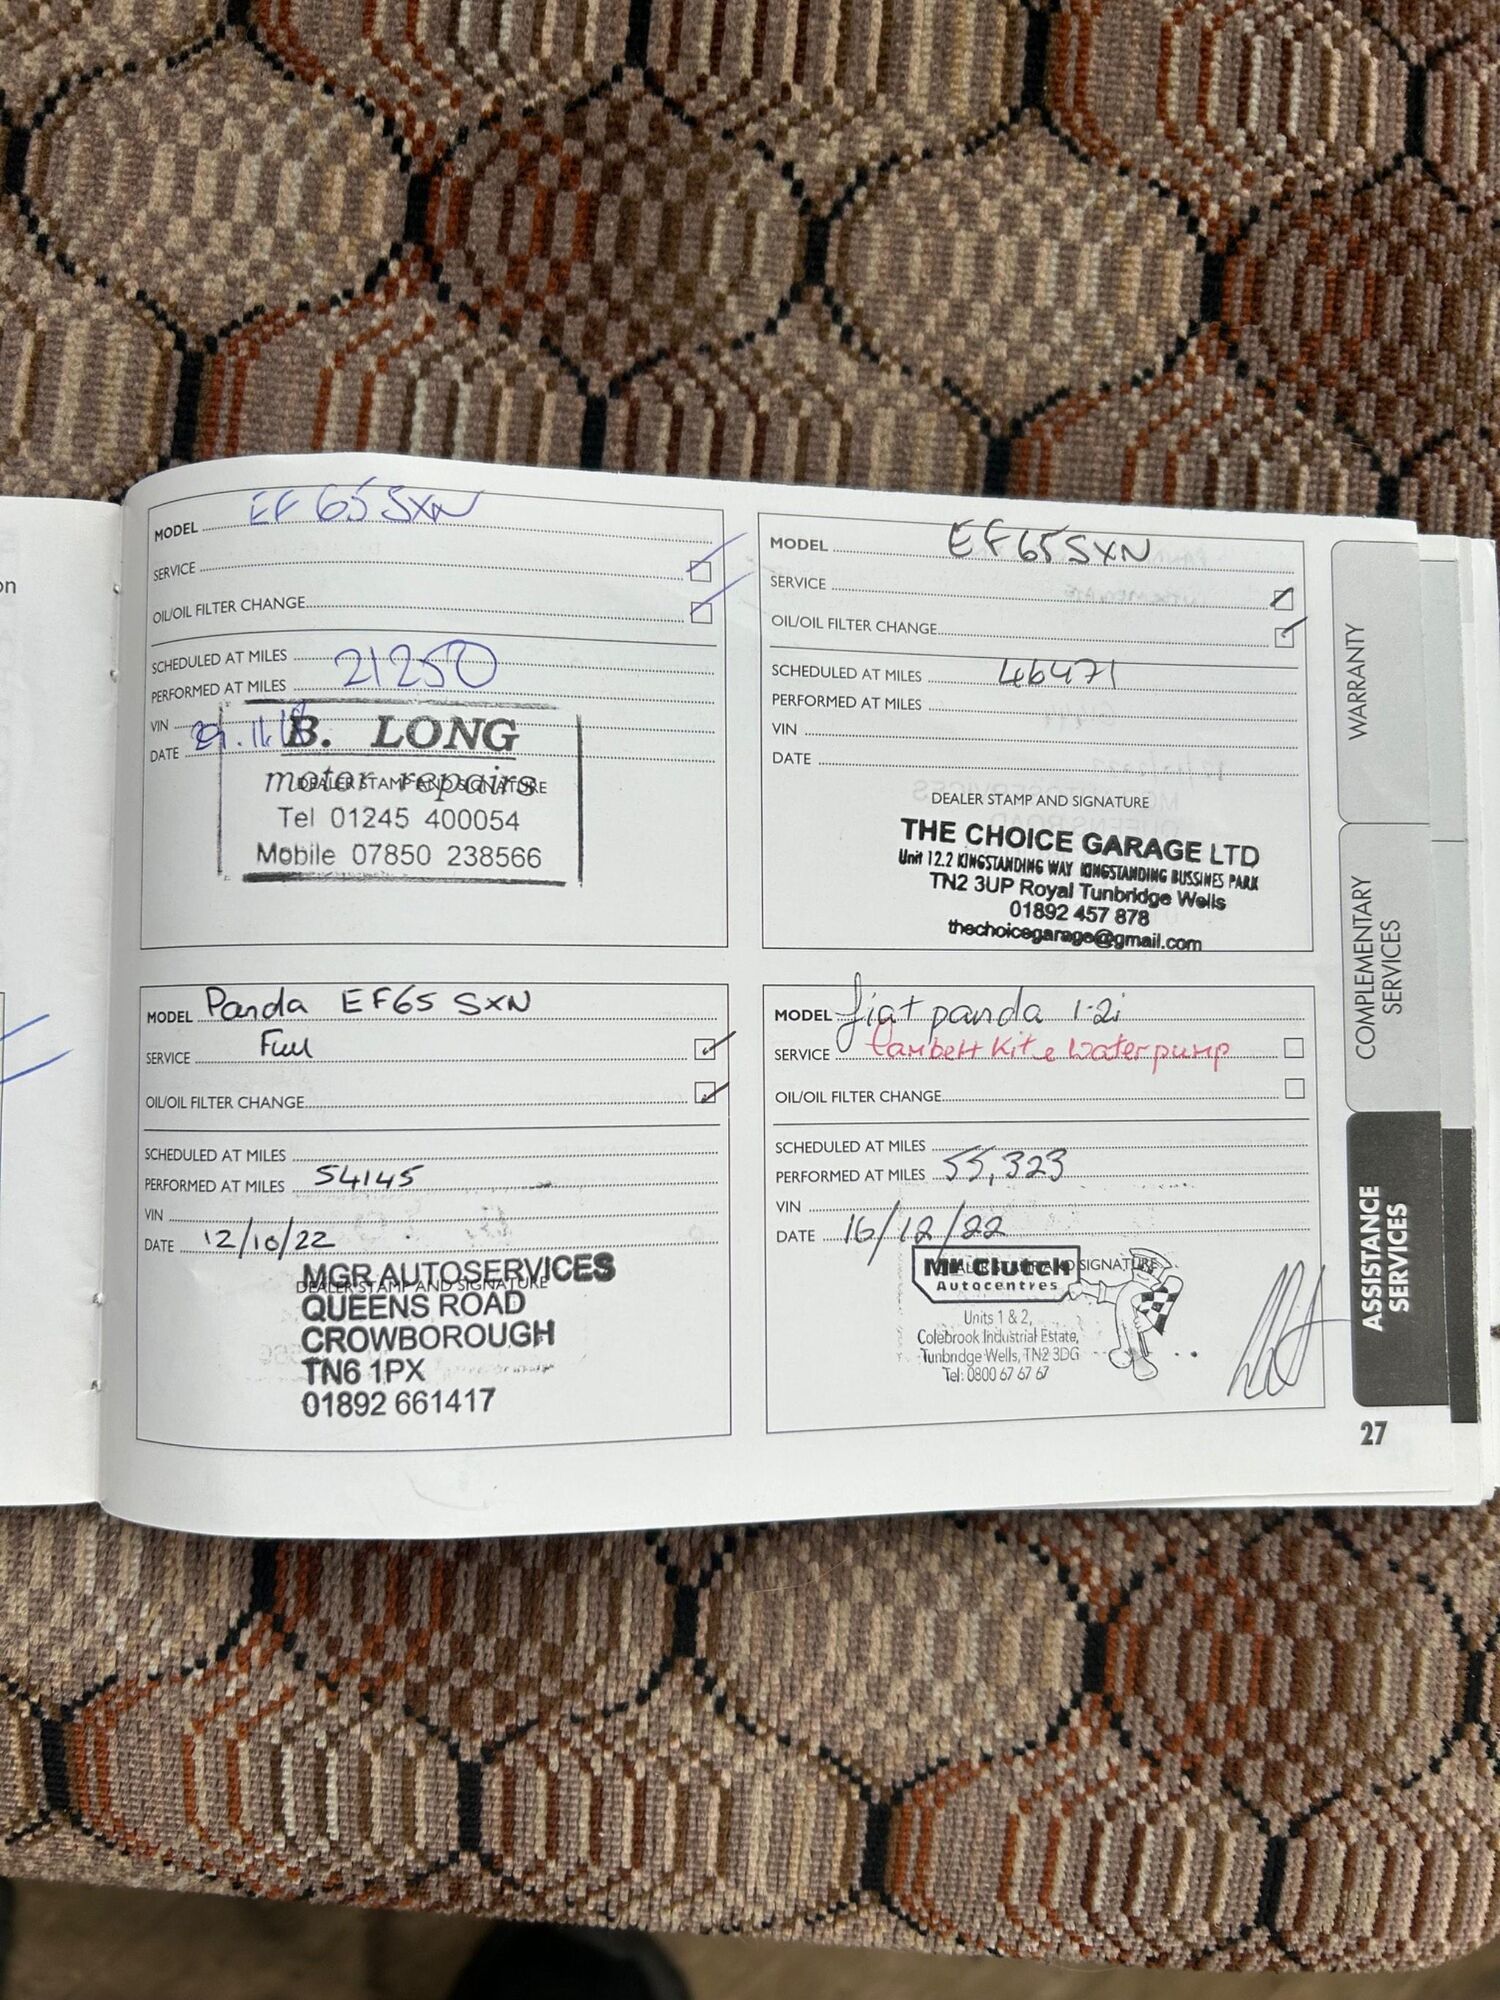 on
MODEL EF65 SXN
SERVICE
OIL/OIL FILTER CHANGE
SCHEDULED AT MILES
PERFORMED AT MILES 21250
VIN
DATE 29.11.18
B. LONG
motor repairs
DEALER STAMP AND SIGNATURE
Tel 01245 400054
Mobile 07850 238566
MODEL EF65SXN
SERVICE
OIL/OIL FILTER CHANGE
SCHEDULED AT MILES 46471
PERFORMED AT MILES
VIN
DATE
DEALER STAMP AND SIGNATURE
THE CHOICE GARAGE LTD
Unit 12.2 KINGSTANDING WAY KINGSTANDING BUSSINES PARK
TN2 3UP Royal Tunbridge Wells
01892 457 878
thechoicegarage@gmail.com
MODEL Panda EF65 SXN
SERVICE Full
OIL/OIL FILTER CHANGE
SCHEDULED AT MILES
PERFORMED AT MILES 54145
VIN
DATE 12/10/22
MGR AUTOSERVICES
DEALER STAMP AND SIGNATURE
QUEENS ROAD
CROWBOROUGH
TN6 1PX
01892 661417
MODEL fiat panda 1.2i
SERVICE Cambelt Kit e Waterpump
OIL/OIL FILTER CHANGE
SCHEDULED AT MILES
PERFORMED AT MILES 55,323
VIN
DATE 16/12/22
DEALER STAMP AND SIGNATURE
Mr Clutch
Autocentres
Units 1 & 2,
Colebrook Industrial Estate,
Tunbridge Wells, TN2 3DG
Tel: 0800 67 67 67
WARRANTY
COMPLEMENTARY
SERVICES
ASSISTANCE
SERVICES
27